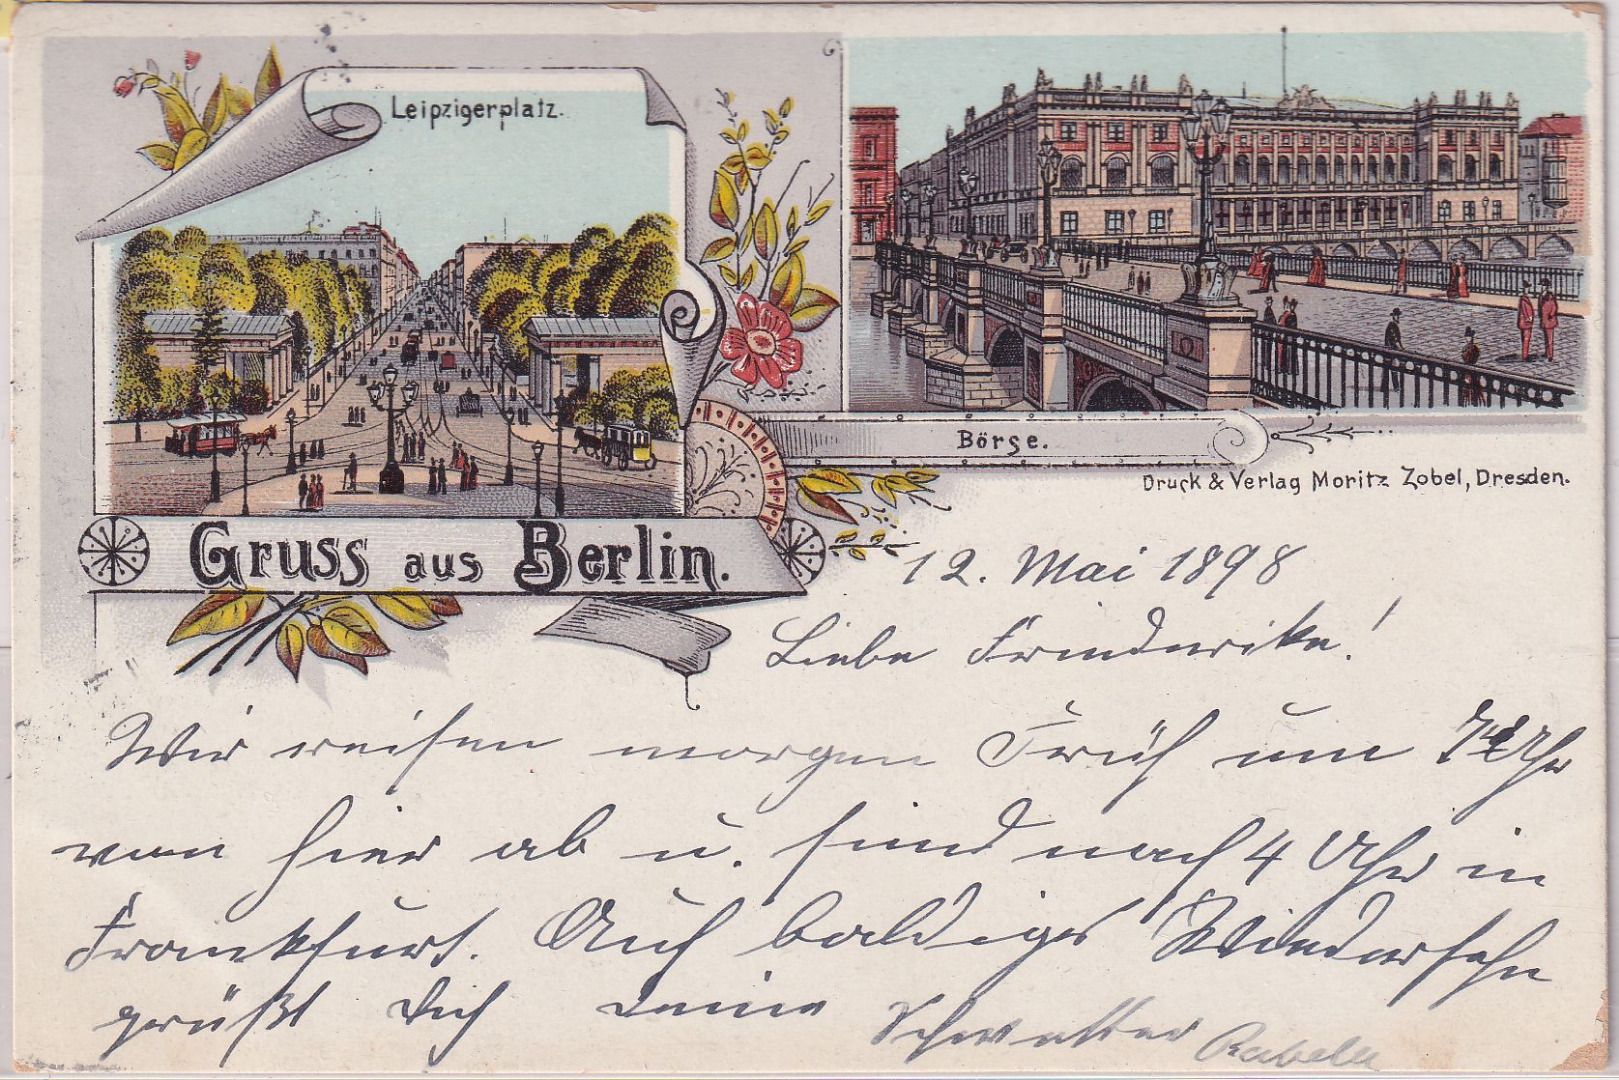 Leipzigerplatz.
Börse.
Druck & Verlag Moritz Zobel, Dresden.
Gruss aus Berlin.
12. Mai 1898
Liebe Friederike!
Wir reisen morgen Früh um Uhr
von hier ab u. sind nach 4 Uhr in
Frankfurt. Auf baldiges Wiedersehn
grüßt Dich Deine Schwester